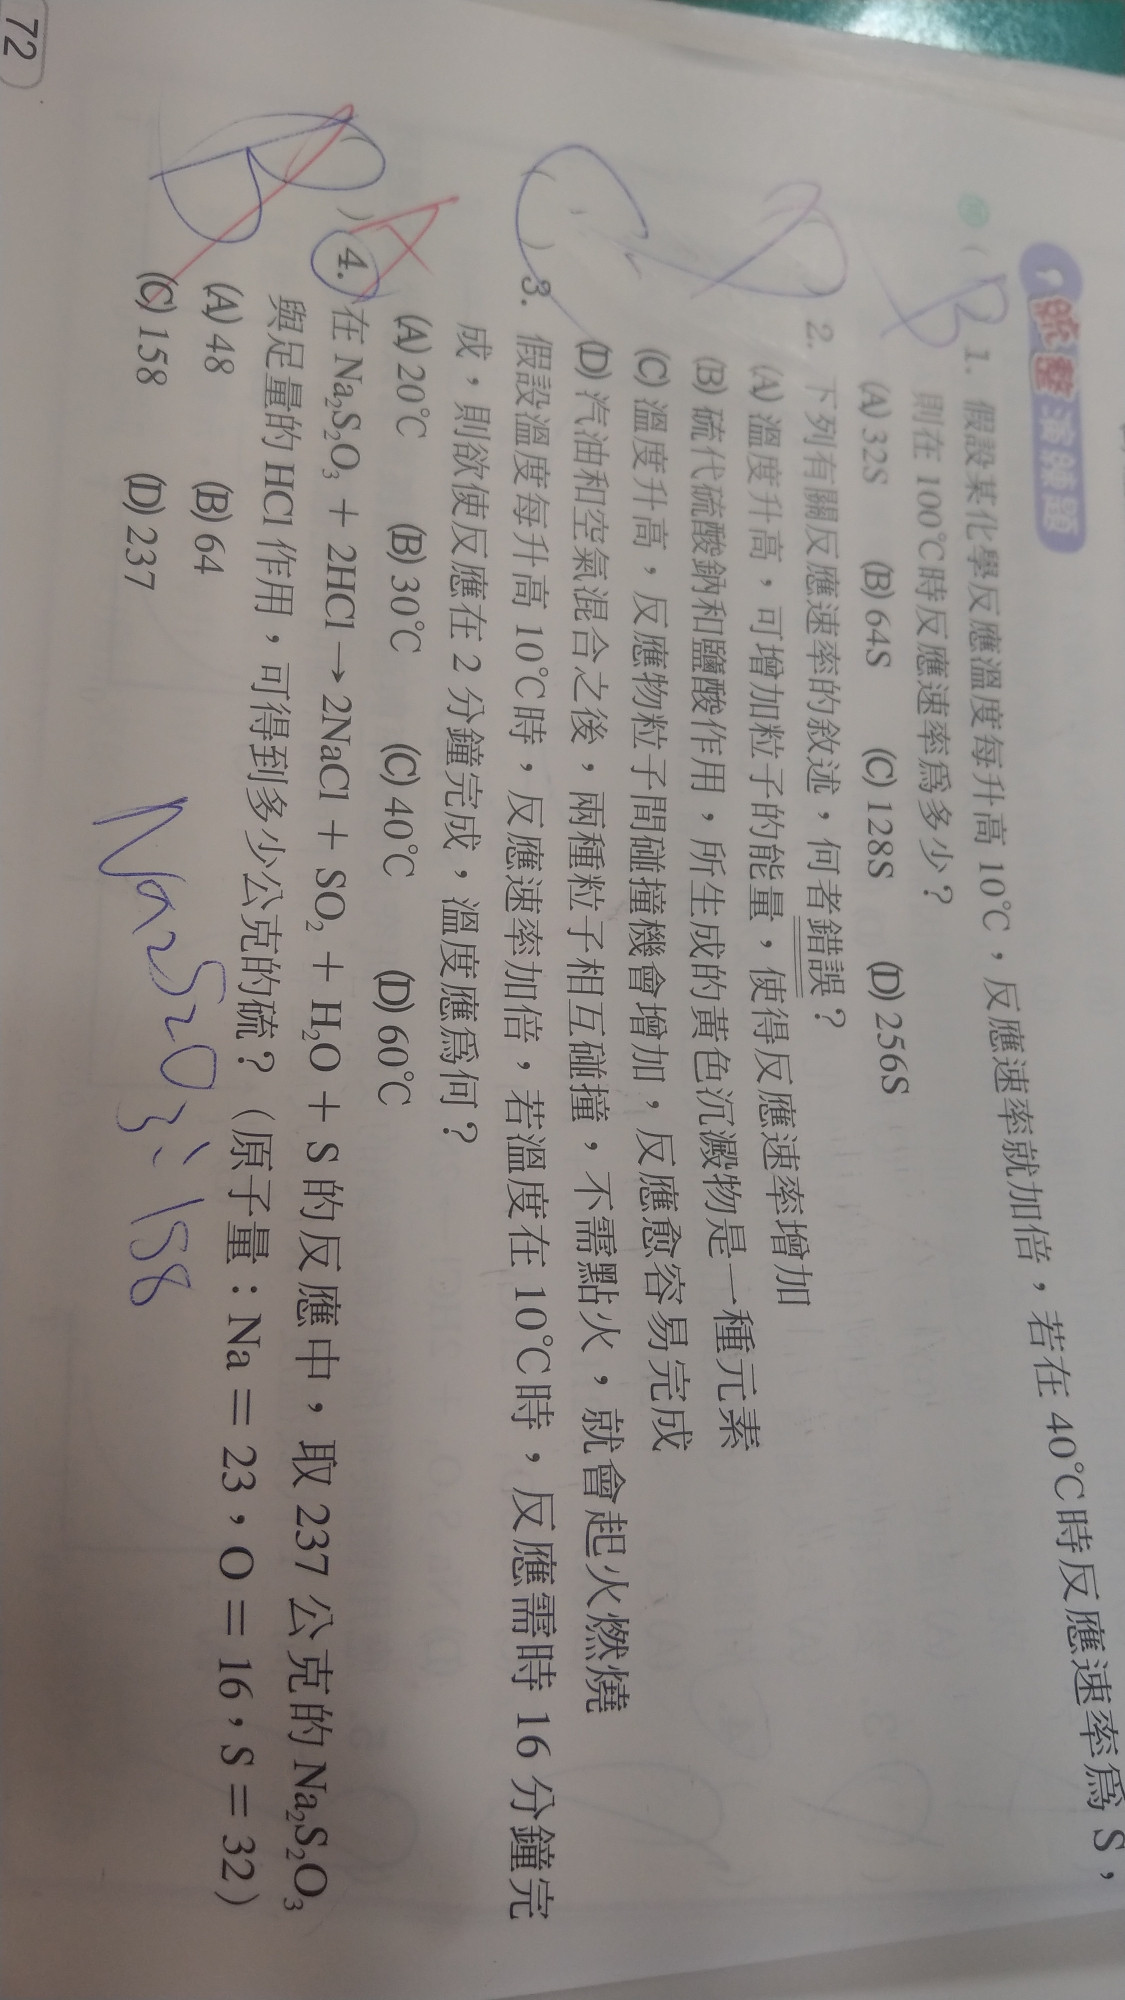 統整演練題
(B) 1. 假設某化學反應溫度每升高 10℃，反應速率就加倍，若在 40℃時反應速率為 S，
則在 100℃時反應速率為多少？
(A) 32S (B) 64S (C) 128S (D) 256S
(D) 2. 下列有關反應速率的敘述，何者錯誤？
(A) 溫度升高，可增加粒子的能量，使得反應速率增加
(B) 硫代硫酸鈉和鹽酸作用，所生成的黃色沉澱物是一種元素
(C) 溫度升高，反應物粒子間碰撞機會增加，反應愈容易完成
(D) 汽油和空氣混合之後，兩種粒子相互碰撞，不需點火，就會起火燃燒
(C) 3. 假設溫度每升高 10℃時，反應速率加倍，若溫度在 10℃時，反應需時 16 分鐘完
成，則欲使反應在 2 分鐘完成，溫度應為何？
(A) 20℃ (B) 30℃ (C) 40℃ (D) 60℃
A
(B) 4. 在 Na₂S₂O₃ + 2HCl → 2NaCl + SO₂ + H₂O + S 的反應中，取 237 公克的 Na₂S₂O₃
與足量的 HCl 作用，可得到多少公克的硫？（原子量：Na = 23，O = 16，S = 32）
(A) 48 (B) 64
(C) 158 (D) 237
Na₂S₂O₃：158
72